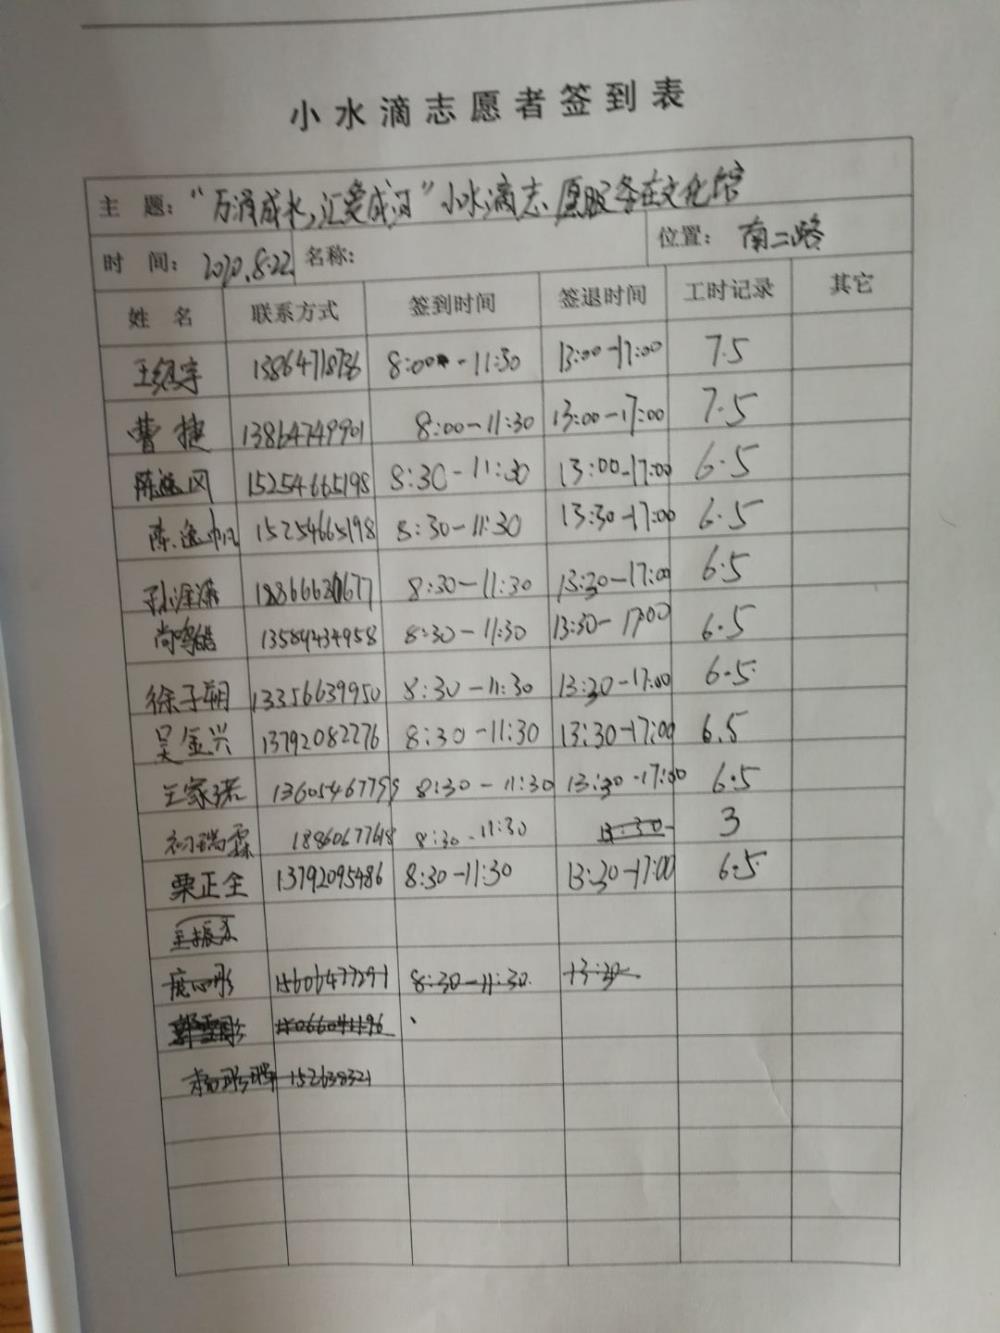 小水滴志愿者签到表
主 题: “万滴成水,汇爱成河”小水滴志愿服务在文化馆
时 间: 2020.8.22 名称: 位置: 南二路
姓 名 联系方式 签到时间 签退时间 工时记录 其它
13864718736 8:00-11:30 13:00-17:00 7.5
曹捷 13864749901 8:00-11:30 13:00-17:00 7.5
陈逸风 15254665198 8:30-11:30 13:00-17:00 6.5
陈逸帆 15254665198 8:30-11:30 13:30-17:00 6.5
8:30-11:30 13:30-17:00 6.5
尚鸣皓 13589434958 8:30-11:30 13:30-17:00 6.5
徐子朔 13356639950 8:30-11:30 13:30-17:00 6.5
吴金兴 13792082276 8:30-11:30 13:30-17:00 6.5
王家诺 13605467799 8:30-11:30 13:30-17:00 6.5
初瑞霖 18860677618 8:30-11:30 13:30- 3
栗正全 13792095486 8:30-11:30 13:30-17:00 6.5
王振
15606477291 8:30-11:30. 13:30
152638321